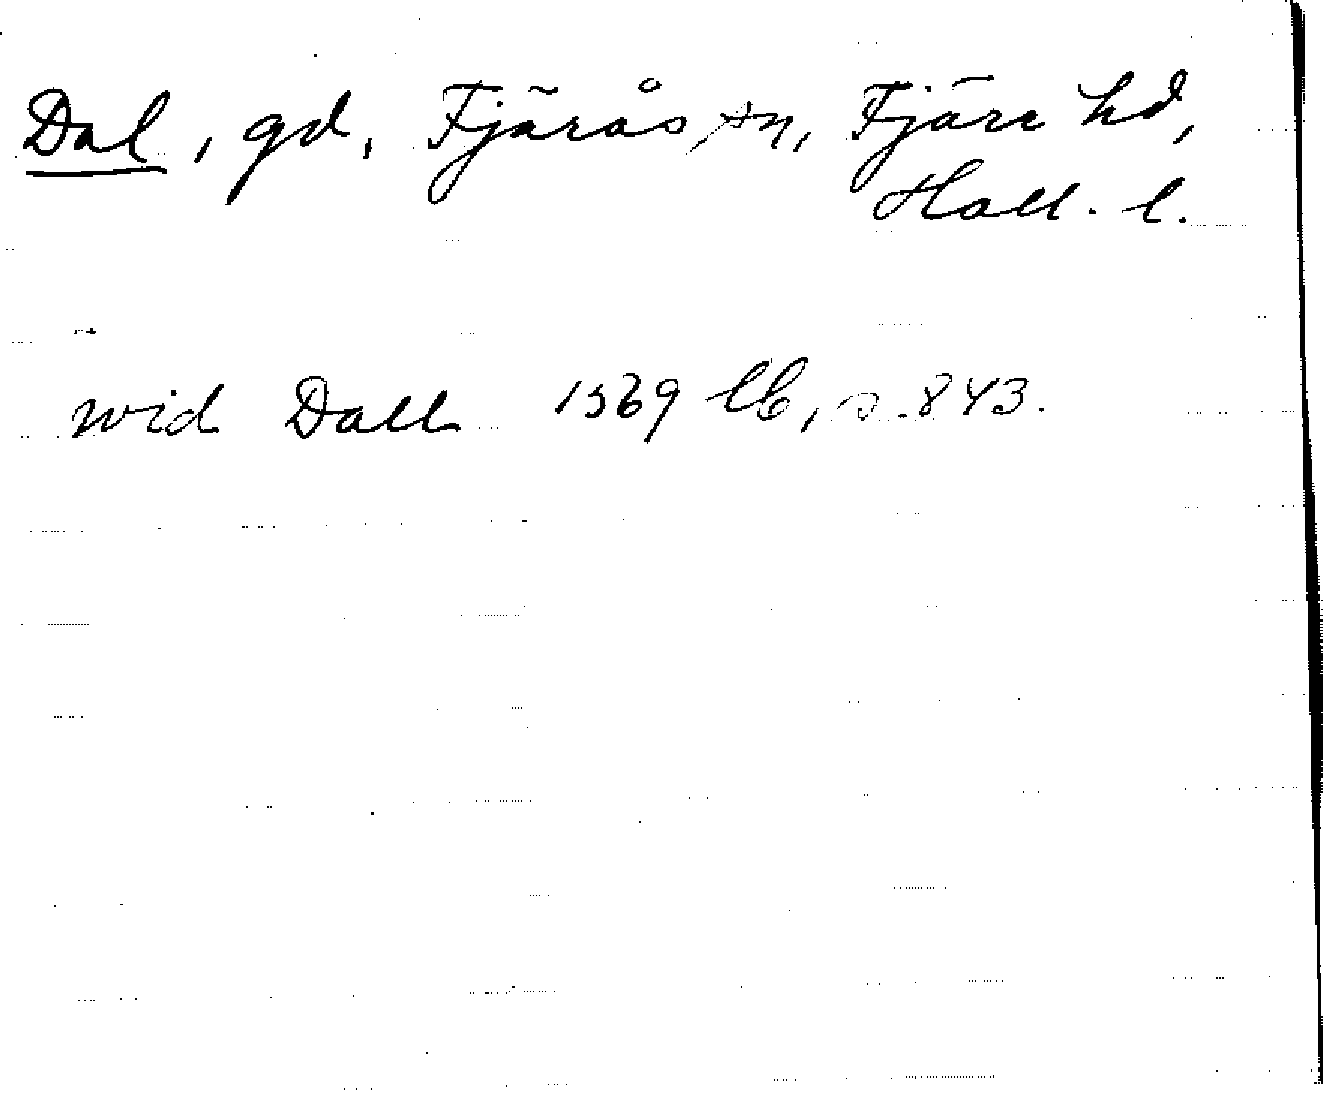 Dal, gd, Fjärås sn, Fjäre hd,
Hall. l.
wid Dall 1569 lb, s. 843.